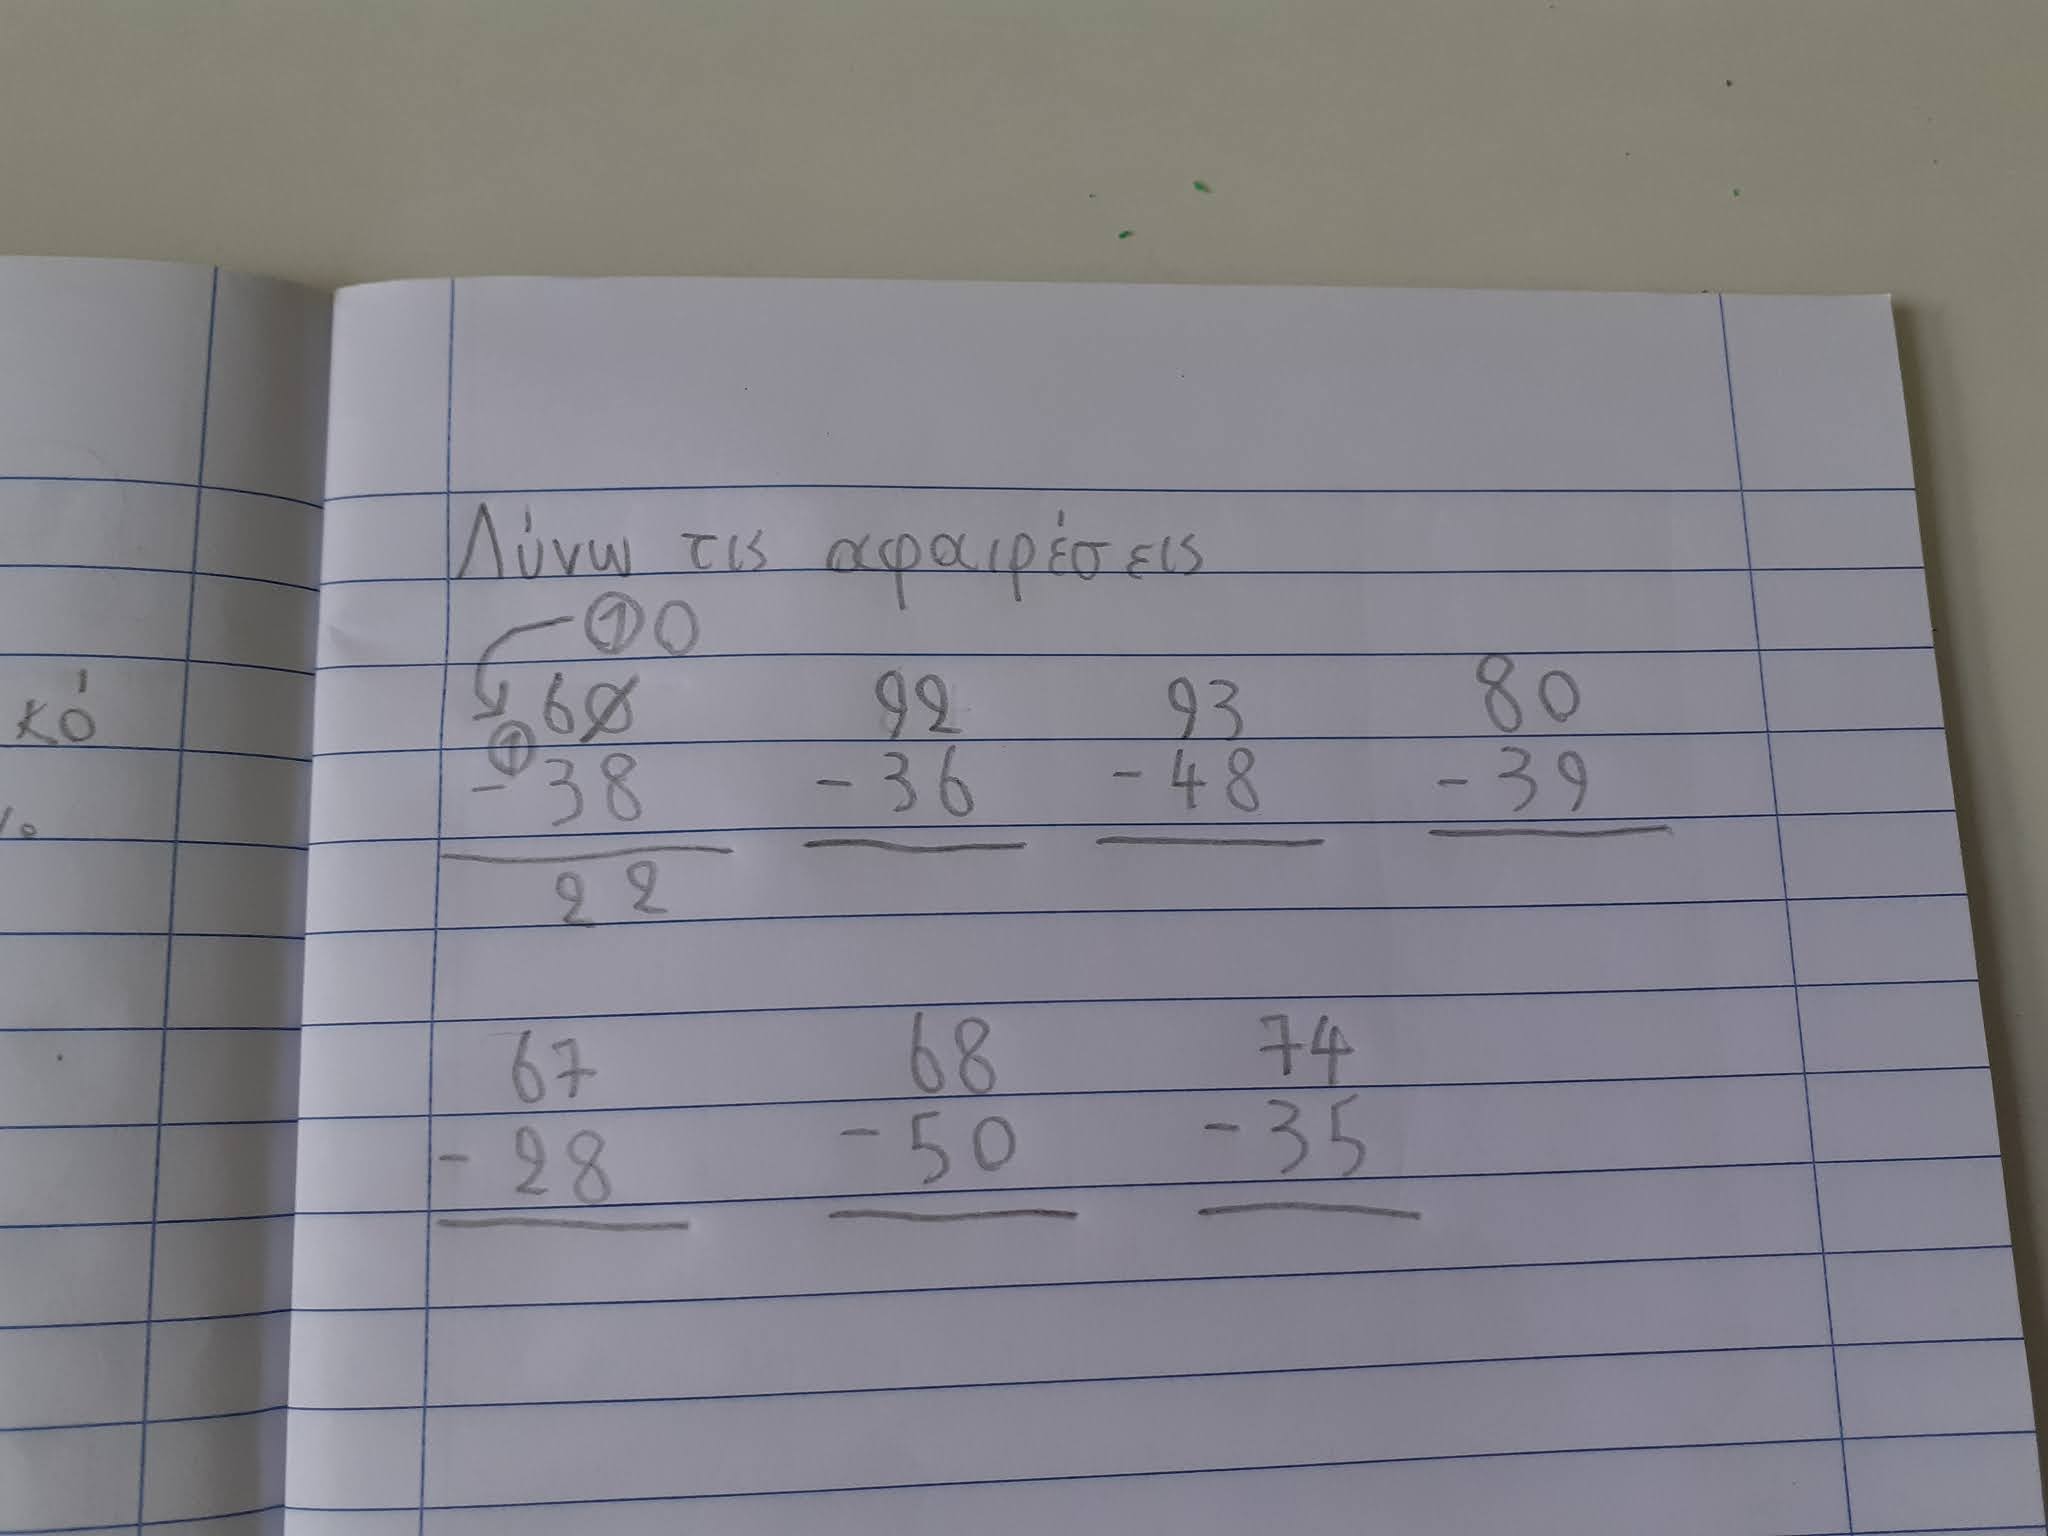 κό
Λύνω τις αφαιρέσεις
① 0
60 92 93 80
① - 38 - 36 - 48 - 39
22
67 68 74
- 28 - 50 - 35